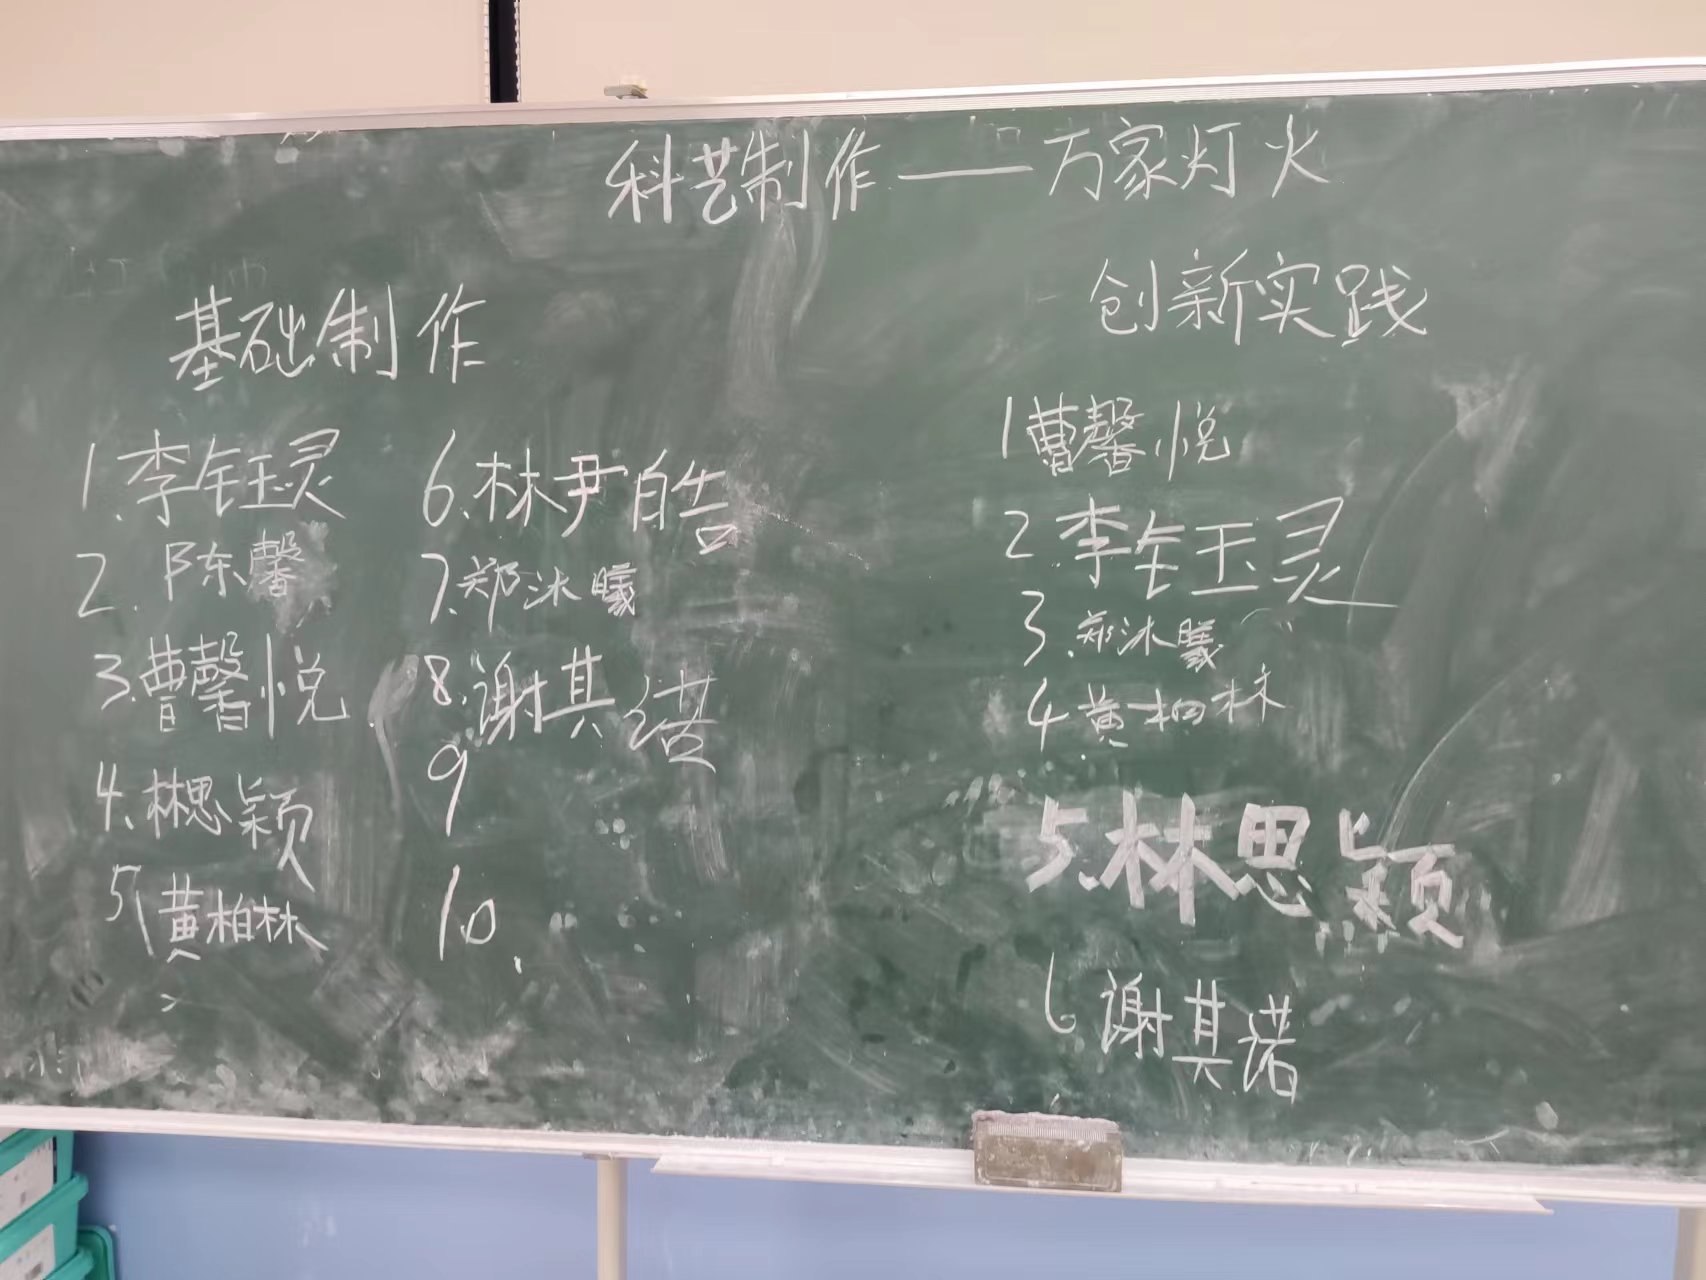 科艺制作——万家灯火
基础制作
1.李钰灵
2.陈馨
3.曹馨悦
4.林思颖
5.黄柏林
6.林尹皓
7.郑沐曦
8.谢其诺
9
10.
创新实践
1曹馨悦
2.李钰灵
3.郑沐曦
4黄柏林
5.林思颖
6谢其诺